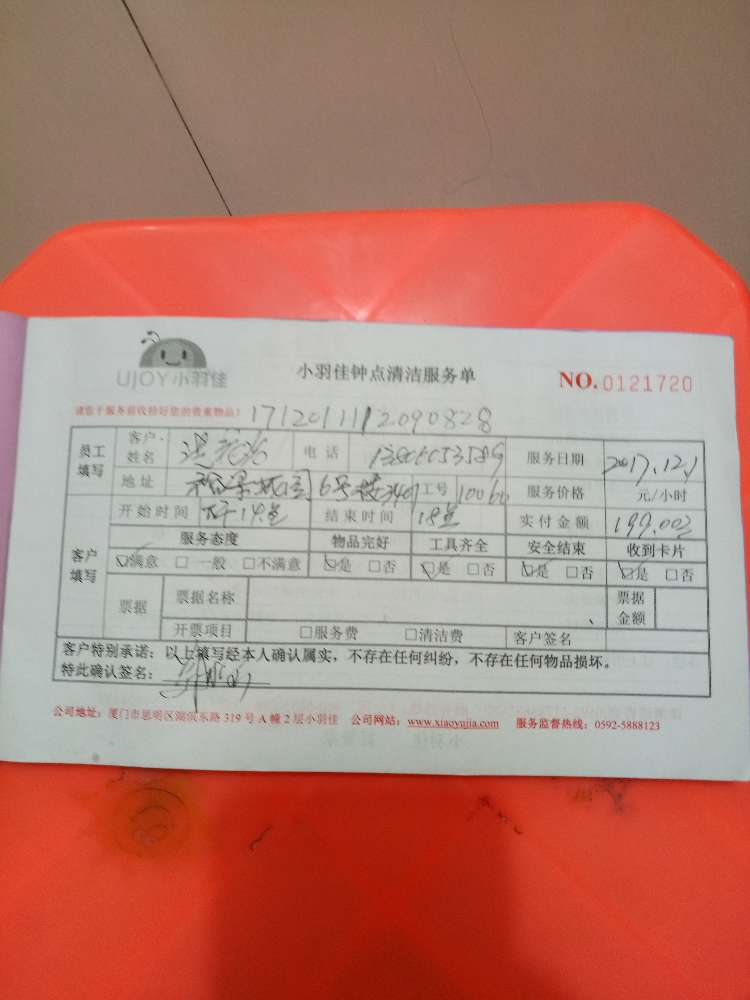 UJOY小羽佳
小羽佳钟点清洁服务单
NO.0121720
请您于服务前收拾好您的贵重物品!
171201112090828
员工填写 客户姓名 电话 服务日期 2017.12.1
地址 6号楼3401 工号 服务价格 元/小时
客户填写 开始时间 下午14点 结束时间 18点 实付金额 199.00
服务态度 物品完好 工具齐全 安全结束 收到卡片
☑满意 □一般 □不满意 ☑是 □否 ☑是 □否 ☑是 □否 ☑是 □否
票据 票据名称 票据金额
开票项目 □服务费 □清洁费 客户签名
客户特别承诺：以上填写经本人确认属实，不存在任何纠纷，不存在任何物品损坏。
特此确认签名：
公司地址：厦门市思明区湖滨东路319号A幢2层小羽佳 公司网站：www.xiaoyujia.com 服务监督热线：0592-5888123